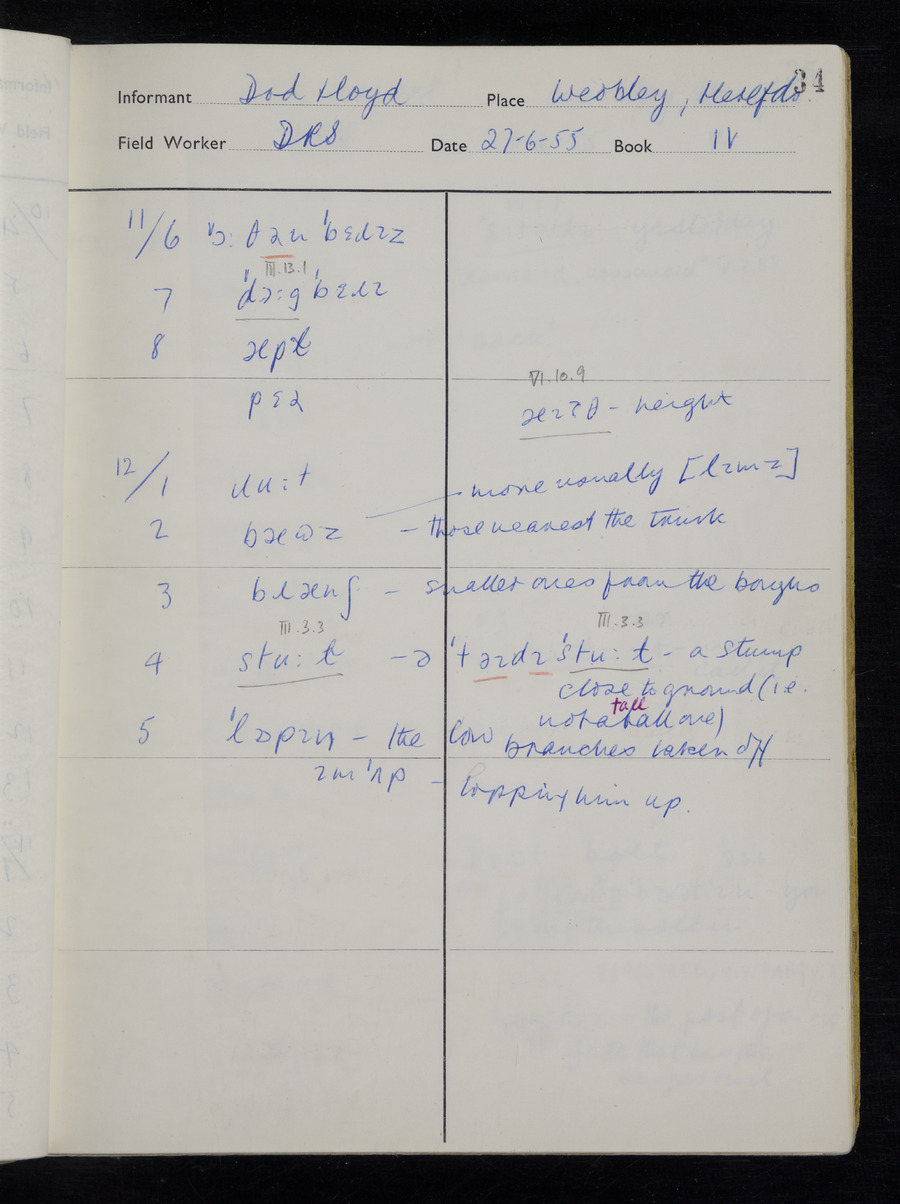 84
Informant Dod Lloyd Place Weobley, Herefds.
Field Worker DRS Date 27-6-55 Book IV
11/6 ˈɔ: θəɹn ˈbɛɹɪz
III.13.1
7 ˈdɔ:g ˈbɛɹɪ
8 æpɫ
VI.10.9
pɛə æɪtθ - height
12/1 ɹu:t more usually [lɪmz]
2 bæωz - those nearest the trunk
3 bɹænʃ - smaller ones from the boughs
III.3.3 III.3.3
4 stu:ɫ - ə ˈtəɪdɪ ˈstu:ɫ - a stump
close to ground (i.e.
tall
not a tall one)
5 ˈlɒpɪŋ - the low branches taken off
ɪm ˈʌp - lopping him up.